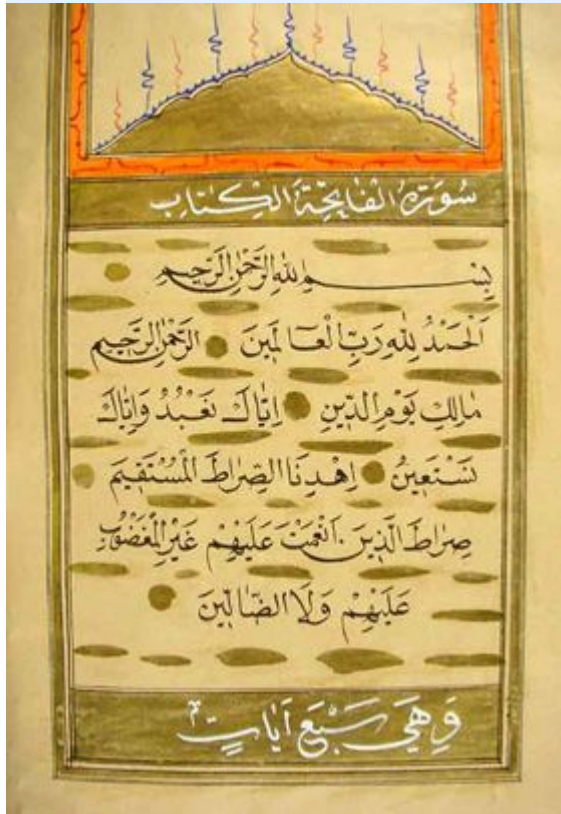 سُورَةُ الْفَاتِحَةِ الْكِتَابِ
بِسْمِ اللهِ الرَّحْمٰنِ الرَّحِيمِ
اَلْحَمْدُ لِلّٰهِ رَبِّ الْعَالَمِينَ الرَّحْمٰنِ الرَّحِيمِ
مَالِكِ يَوْمِ الدِّينِ اِيَّاكَ نَعْبُدُ وَاِيَّاكَ
نَسْتَعِينُ اِهْدِنَا الصِّرَاطَ الْمُسْتَقِيمَ
صِرَاطَ الَّذِينَ اَنْعَمْتَ عَلَيْهِمْ غَيْرِ الْمَغْضُوبِ
عَلَيْهِمْ وَلَا الضَّالِّينَ
وَهِيَ سَبْعُ اٰيَاتٍ